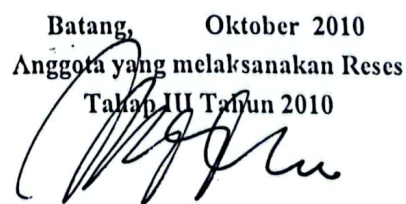 Batang, Oktober 2010
Anggota yang melaksanakan Reses
Tahap III Tahun 2010